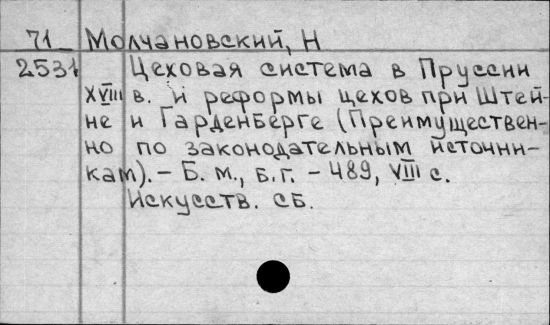 71 Молчановский, Н
2531 Цеховая система в Пруссии
XVIII в. и реформы цехов при Штей-
не и Гарденберге (Преимуществен-
но по законодательным источни-
кам). - Б. м., б.г. - 489, VIII с.
Искусств. сб.